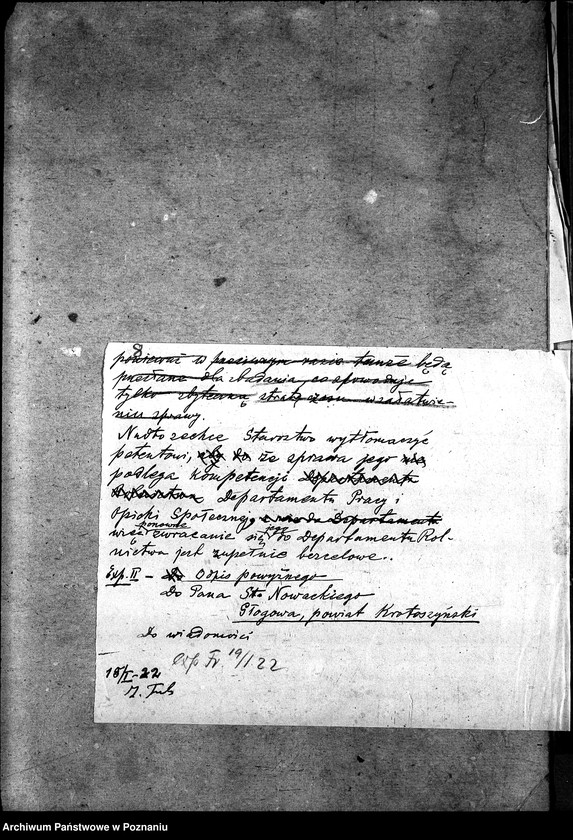 ponieważ w przeciwnym razie tamże będą
przesłane dla badania, co spowoduje
tylko zbyteczną stratę czasu w załatwie-
niu sprawy.
Nadto zechce Starostwo wytłomaczyć
petentowi, że sprawa jego nie
podlega kompetencji
Departamentu Pracy i
Opieki Społecznej, a nie do Departamentu
więc ponowne zwracanie się jego do Departamentu Rol-
nictwa jest zupełnie bezcelowe..
Exp. II – Odpis powyższego
Do Pana St. Nowackiego
Głogowa, powiat Krotoszyński
Do wiadomości
exp Fr. 19/I 22
18/I-22
Archiwum Państwowe w Poznaniu